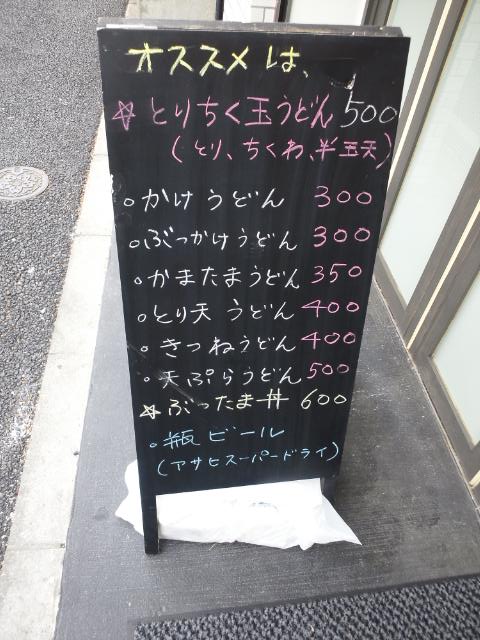 オススメは、
☆とりちく玉うどん 500
(とり、ちくわ、半玉天)
◦かけうどん 300
◦ぶっかけうどん 300
◦かまたまうどん 350
◦とり天うどん 400
◦きつねうどん 400
◦天ぷらうどん 500
☆ぶったま丼 600
◦瓶ビール
(アサヒスーパードライ)